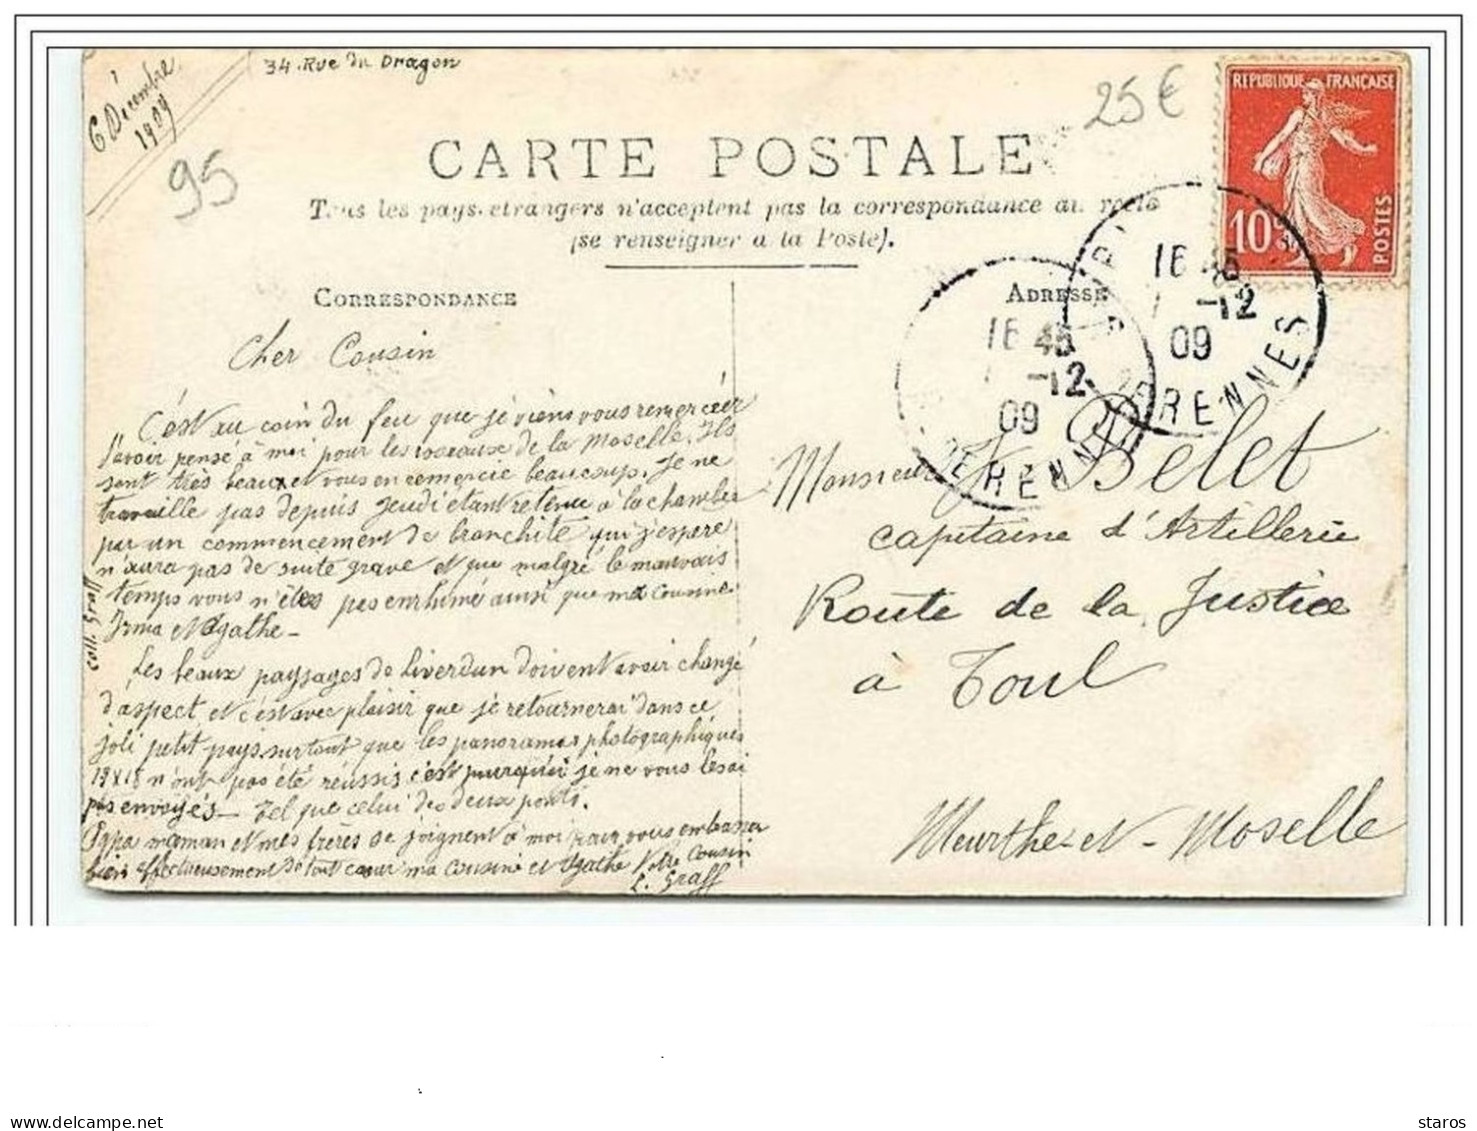 6 Décembre
1909
34. Rue du Dragon
95
25€
REPUBLIQUE FRANÇAISE
10c
POSTES
CARTE POSTALE
Tous les pays étrangers n'acceptent pas la correspondance au recto
(se renseigner à la Poste).
CORRESPONDANCE
ADRESSE
16 45
-12
09
R. DE RENNES
16 45
-12
09
R. DE RENNES
Cher Cousin
C'est au coin du feu que je viens vous remercier
d'avoir pensé à moi pour les roseaux de la Moselle. Ils
sont très beaux et vous en remercie beaucoup. Je ne
travaille pas depuis jeudi étant retenu à la chambre
par un commencement de bronchite qui j'espère
n'aura pas de suite grave et que malgré le mauvais
temps vous n'êtes pas enrhumé ainsi que ma cousine
Irma et Agathe –
Les beaux paysages de Liverdun doivent avoir changé
d'aspect et c'est avec plaisir que je retournerai dans ce
joli petit pays surtout que les panoramas photographiques
13 x 18 n'ont pas été réussis c'est pourquoi je ne vous les ai
pas envoyés – tel que celui des deux ponts.
Papa maman et mes frères se joignent à moi pour vous embrasser
bien affectueusement de tout cœur ma Cousine et Agathe Votre Cousin
L. Graff
coll. Graff
Monsieur J. Belet
capitaine d'Artillerie
Route de la Justice
à Toul
Meurthe-et-Moselle
staros